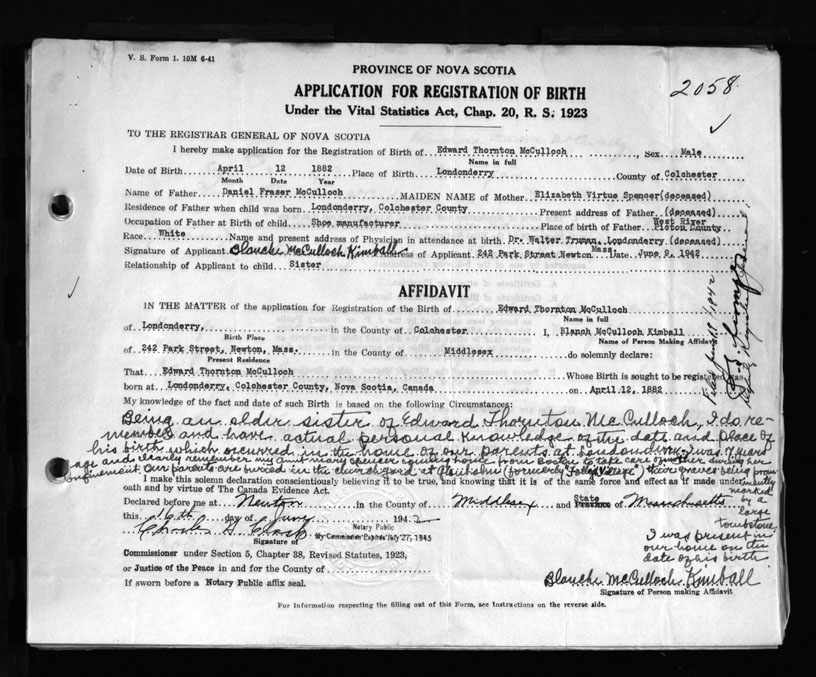 V. S. Form 1. 10M 6-41
PROVINCE OF NOVA SCOTIA
2058
APPLICATION FOR REGISTRATION OF BIRTH
Under the Vital Statistics Act, Chap. 20, R. S. 1923
TO THE REGISTRAR GENERAL OF NOVA SCOTIA
I hereby make application for the Registration of Birth of Edward Thornton McCulloch, Sex Male
Name in full
Date of Birth April 12 1882 Place of Birth Londonderry County of Colchester
Month Date Year
Name of Father Daniel Fraser McCulloch MAIDEN NAME of Mother Elizabeth Virtue Spencer(deceased)
Residence of Father when child was born Londonderry, Colchester County Present address of Father (deceased)
Occupation of Father at Birth of child Shoe manufacturer Place of birth of Father West River Pictou County
Race White Name and present address of Physician in attendance at birth Dr. Walter Truman, Londonderry (deceased)
Signature of Applicant Blanche McCulloch Kimball Address of Applicant 242 Park Street Newton Mass. Date June 9, 1942
Relationship of Applicant to child Sister
AFFIDAVIT
IN THE MATTER of the application for Registration of the Birth of Edward Thornton McCulloch
Name in full
of Londonderry, in the County of Colchester I, Blanch McCulloch Kimball
Birth Place Name of Person Making Affidavit
of 242 Park Street, Newton, Mass. in the County of Middlesex do solemnly declare:
Present Residence
That Edward Thornton McCulloch Whose Birth is sought to be registered was
born at Londonderry, Colchester County, Nova Scotia, Canada on April 12, 1882
My knowledge of the fact and date of such Birth is based on the following Circumstances:
Being an older sister of Edward Thornton McCulloch, I do re-
member and have actual personal knowledge of the date and place of
his birth which occurred in the home of our parents at Londonderry. I was 9 years
of age and clearly remember my Aunt Mary Spencer coming home from Boston to take care of mother during her
confinement. Our parents are buried in the churchyard at (formerly "Folly Village") their graves being prom
inently
marked
by a
large
tombstone
I was present in
our home on the
date of his birth
I make this solemn declaration conscientiously believing it to be true, and knowing that it is of the same force and effect as if made under
oath and by virtue of The Canada Evidence Act.
Declared before me at Newton in the County of Middlesex and State Province of Massachusetts
this 16th day of June 1942
Notary Public
Signature of My Commission Expires July 27, 1945
Commissioner under Section 5, Chapter 38, Revised Statutes, 1923,
or Justice of the Peace in and for the County of
If sworn before a Notary Public affix seal.
Blanche McCulloch Kimball
Signature of Person making Affidavit
For Information respecting the filling out of this Form, see Instructions on the reverse side.